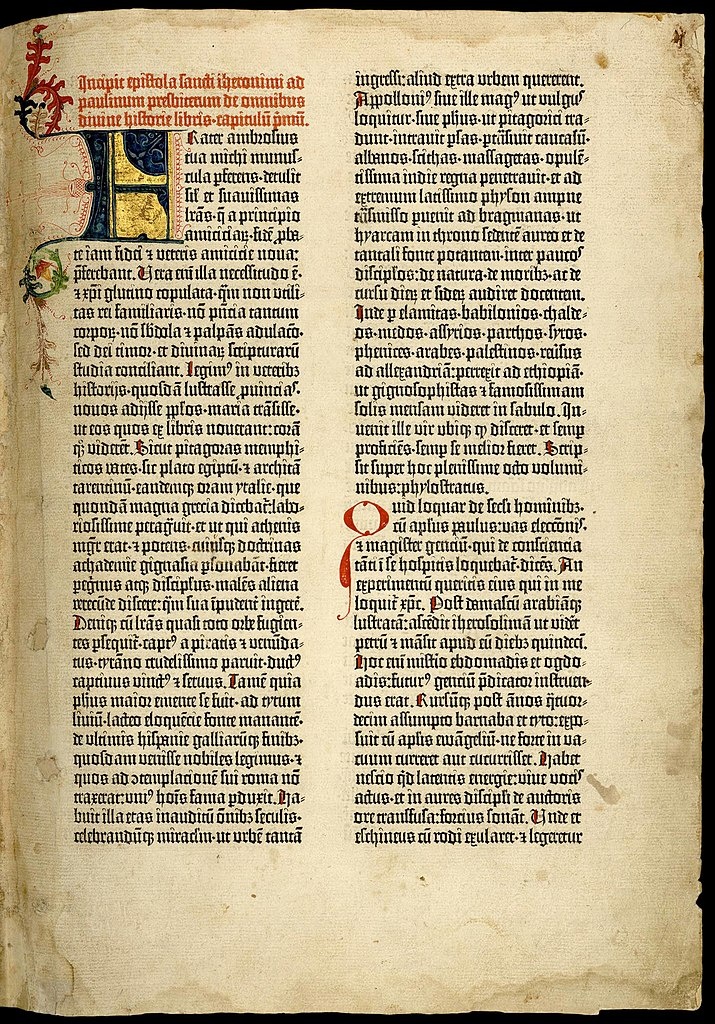 Incipit epistola sancti iheronimi ad
paulinum presbiterum de omnibus
divine historie libris· capitulū pmū.
Frater ambrosius
tua michi munus-
cula pferens· detulit
sił et suavissimas
lrās· q̄ a principio
amiciciaꝝ· fidē pba-
te iam fidei ⁊ veteris amicicie nova:
pferebant. Vera eni illa necessitudo ē·
⁊ xpi glutino copulata· q̄m non utili-
tas rei familiaris· nō pntia tantum
corpoꝝ· nō sbdola ⁊ palpās adulacō·
sed dei timor· et divinaꝝ scripturarū
studia conciliant. Legimꝰ in veteribꝫ
historijs· quosdā lustrasse pvincias·
novos adijsse pplos· maria trāsisse·
ut eos quos ex libris noverant: corā
qꝫ viderēt. Sicut pitagoras memphi-
ticos vates· sic plato egiptū· ⁊ architā
tarentinū· eandemqꝫ oram ytalie· que
quondā magna grecia dicebat̄: labo-
riosissime peragvit· et ut qui athenis
mgr̄ erat· ⁊ potens· cuiusqꝫ doctrinas
achademie gignasia psonabāt· fieret
peginus atqꝫ discipulus· malēs aliena
verecūde discere: q̄m sua īpudent̄ ingerē.
Deniqꝫ cū lrās quasi toto orbe fugien-
tes psequit̄· captꝰ a piratis ⁊ venūda-
tus· tyrāno crudelissimo paruit· ductꝰ
captivus vinctꝰ ⁊ servus. Tamē quia
phus maior emente se fuit· ad tytum
liviū· lacteo eloquēcie fonte manantē·
de ultimis hispanie galliarūqꝫ finibꝫ·
quosdam venisse nobiles legimus· et
quos ad ꝯtemplacionē sui roma nō
traxerat: uniꝰ hoīs fama pduxit. Ha-
buit illa etas inauditū ōnibꝫ seculis·
celebrandūqꝫ miraclm· ut urbē tantā
ingressi: aliud extra urbem quererent.
Appolloniꝰ sive ille magꝰ ut vulgus
loquitur· sive phus· ut pitagorici tra-
dunt· intravit psas· ptrāsivit caucasū·
albanos· scithas· massagetas· opulē-
tissima indie regna penetravit· et ad
extremum latissimo physon ampne
trāsmisso puenit ad bragmanas· ut
hyarcam in throno sedentē aureo et de
tantali fonte potantem· inter paucos
discipulos: de natura· de moribꝫ· ac de
cursu dieꝝ et sideꝝ audiret docentem.
Inde p elamitas· babilonios· chalde-
os· medos· assyrios· parthos· syros·
phenices· arabes· palestinos· reūsus
ad allexandriā: perrexit ad ethiopiā·
ut gignosophistas ⁊ famosissimam
solis mensam videret in sabulo. In-
venit ille vir ubiqꝫ qꝫ disceret· et semp
proficiēs· semp se melior fieret. Scrip-
sit super hoc plenissime octo volumi-
nibus: phylostratus.
Quid loquar de secli hominibꝫ·
cū aplus paulus: vas eleccōnis·
⁊ magister genciū· qui de consciencia
tāti ī se hospitis loquebat̄· dicēs. An
experimentū queritis eius qui in me
loquit̄ xpc. Post damascū arabiāqꝫ
lustratā: ascēdit iherosolimā ut vidēt
petrū ⁊ māsit apud eū diebꝫ quindeci.
Hoc eni misterio ebdomadis et ogdo-
adis: futurꝰ genciū pdicator instruen-
dus erat. Rursūqꝫ post ānos qtuor-
decim assumpto barnaba et tyto: expo-
suit cū aplis ewāgeliū· ne forte in va-
cuum curreret aut cucurrisset. Habet
nescio qd latentis energie: vive vocis
actus· et in aures discipli de auctoris
ore transfusa: forcius sonāt. Unde et
eschineus cū rodi exularet· ⁊ legeretur